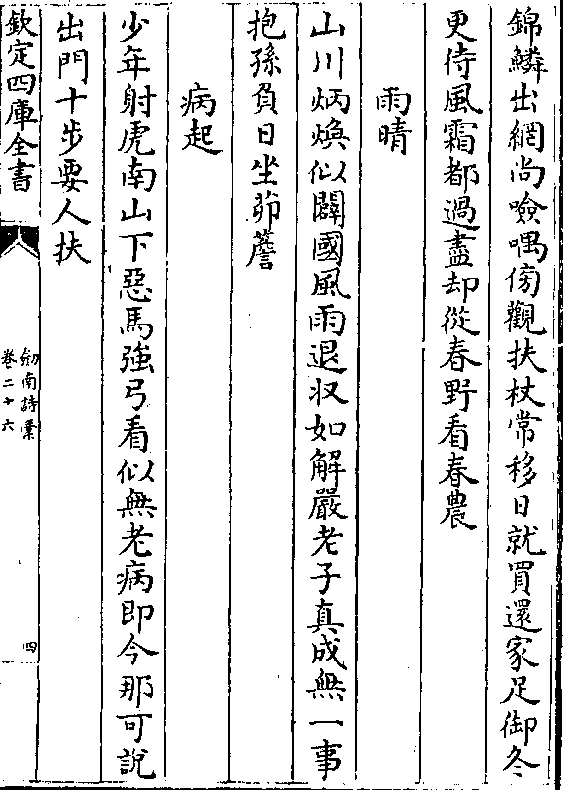 錦鱗出網尚噞喁傍觀扶杖常移日就買還家足御冬
更待風霜都過盡却從春野看春農
雨晴
山川炳煥似闢國風雨退収如解嚴老子真成無一事
抱孫負日坐茆簷
病起
少年射虎南山下惡馬強弓看似無老病即今那可說
出門十步要人扶
欽定四庫全書
劒南詩稾
卷二十六
四